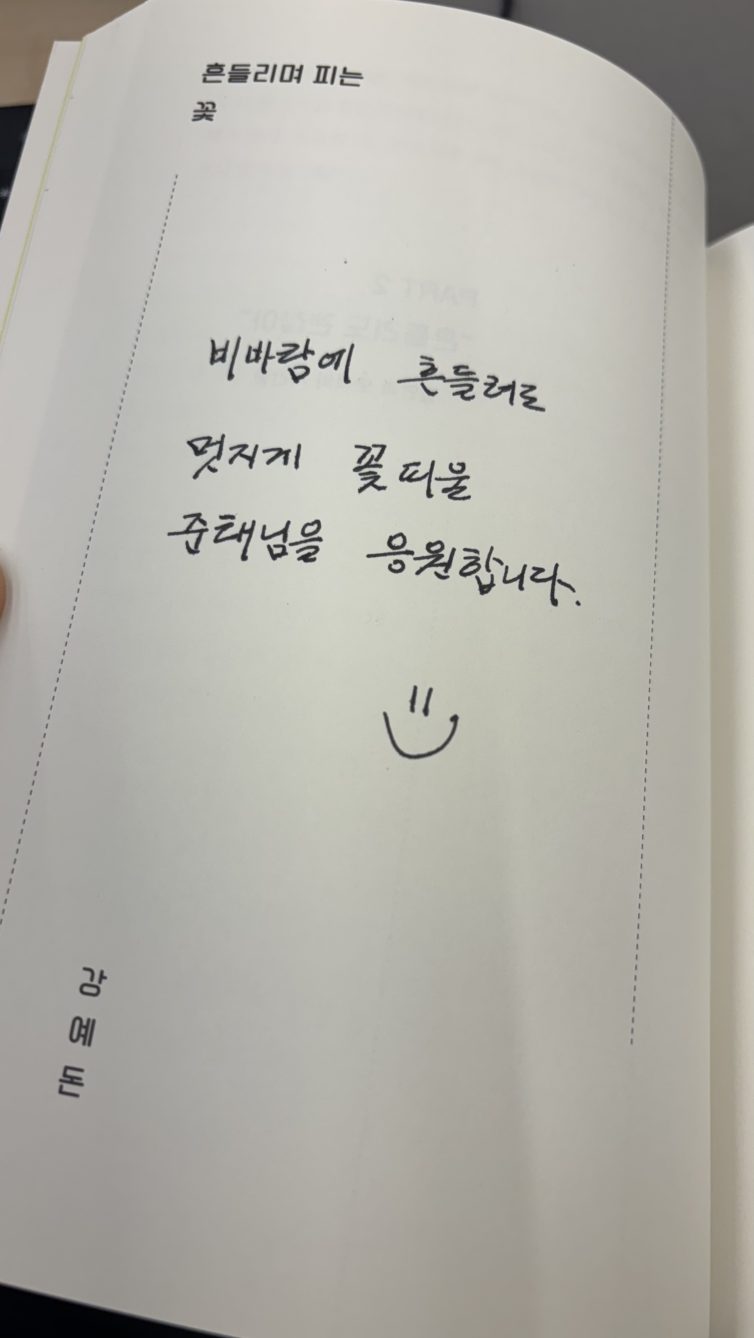 흔들리며 피는
꽃
비바람에 흔들려도
멋지게 꽃 피울
준태님을 응원합니다.
강
예
돈